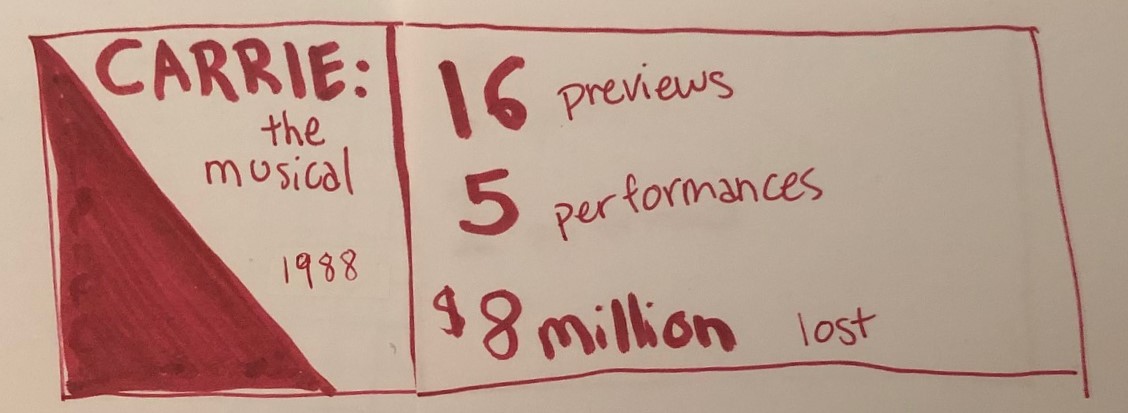 CARRIE:
the
musical
1988
16 previews
5 performances
$8 million lost